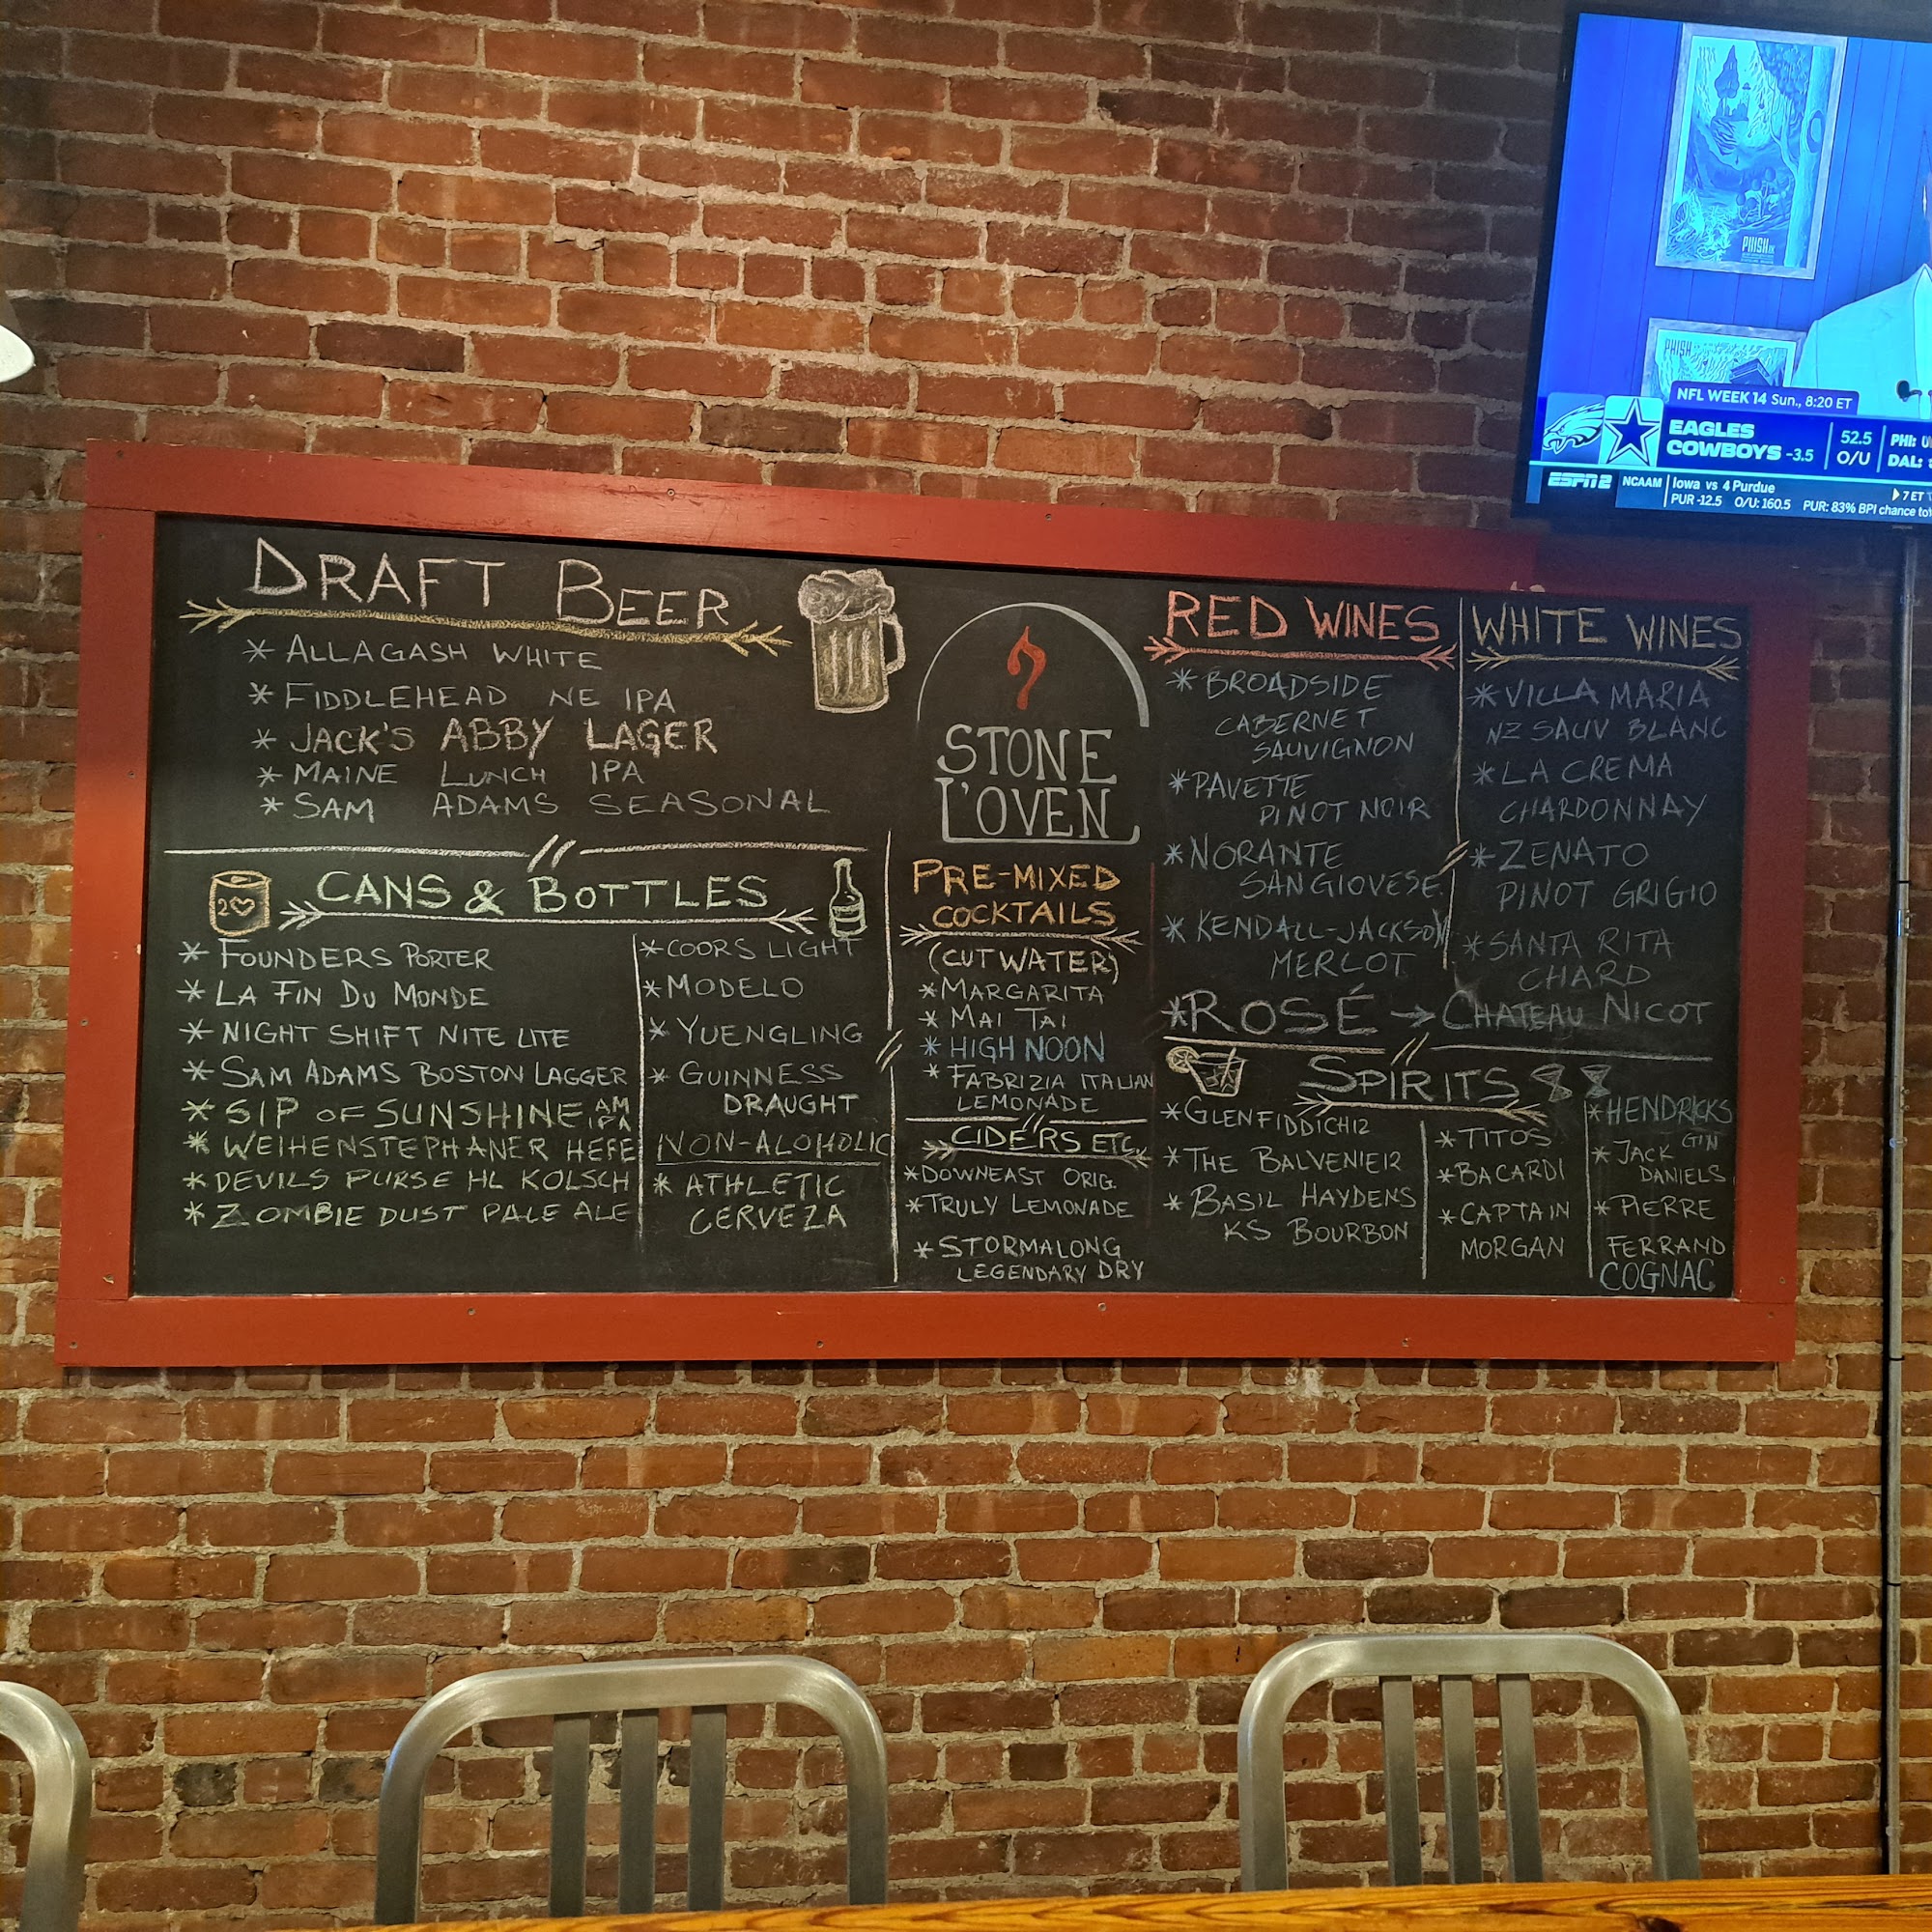 PHISH
PHISH
NFL WEEK 14 Sun., 8:20 ET
EAGLES
COWBOYS -3.5
52.5
O/U
PHI:
DAL:
ESPN2
NCAAM
Iowa vs 4 Purdue
PUR -12.5 O/U: 160.5 PUR: 83% BPI chance to
7 ET
DRAFT BEER
* ALLAGASH WHITE
* FIDDLEHEAD NE IPA
* JACK'S ABBY LAGER
* MAINE LUNCH IPA
* SAM ADAMS SEASONAL
CANS & BOTTLES
* FOUNDERS PORTER
* LA FIN DU MONDE
* NIGHT SHIFT NITE LITE
* SAM ADAMS BOSTON LAGGER
* SIP OF SUNSHINE AM
IPA
* WEIHENSTEPHANER HEFE
* DEVILS PURSE HL KOLSCH
* ZOMBIE DUST PALE ALE
* COORS LIGHT
* MODELO
* YUENGLING
* GUINNESS
DRAUGHT
NON-ALOHOLIC
* ATHLETIC
CERVEZA
STONE
L'OVEN
PRE-MIXED
COCKTAILS
(CUTWATER)
* MARGARITA
* MAI TAI
* HIGH NOON
* FABRIZIA ITALIAN
LEMONADE
CIDERS ETC.
* DOWNEAST ORIG.
* TRULY LEMONADE
* STORMALONG
LEGENDARY DRY
RED WINES
* BROADSIDE
CABERNET
SAUVIGNON
* PAVETTE
PINOT NOIR
* NORANTE
SANGIOVESE
* KENDALL-JACKSON
MERLOT
WHITE WINES
* VILLA MARIA
NZ SAUV BLANC
* LA CREMA
CHARDONNAY
* ZENATO
PINOT GRIGIO
* SANTA RITA
CHARD
* ROSÉ → CHATEAU NICOT
SPIRITS
* GLENFIDDICH12
* THE BALVENIE12
* BASIL HAYDENS
KS BOURBON
* TITOS
* BACARDI
* CAPTAIN
MORGAN
* HENDRICKS
GIN
* JACK
DANIELS
* PIERRE
FERRAND
COGNAC